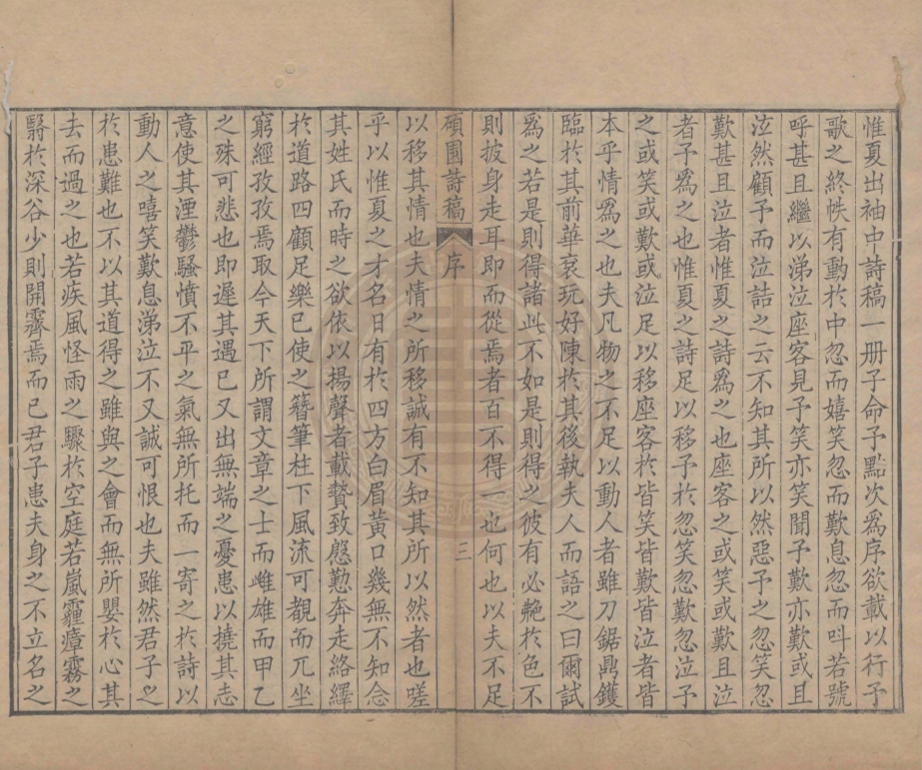 惟夏出袖中詩稿一册子命予點次爲序欲載以行予
歌之終帙有動於中忽而嬉笑忽而歎息忽而叫若號
呼甚且繼以涕泣座客見予笑亦笑聞予歎亦歎或且
泣然顧予而泣詰之云不知其所以然惡予之忽笑忽
歎甚且泣者惟夏之詩爲之也座客之或笑或歎且泣
者予爲之也惟夏之詩足以移予於忽笑忽歎忽泣予
之或笑或歎或泣足以移座客於皆笑皆歎皆泣者皆
本乎情爲之也夫凡物之不足以動人者雖刀鋸鼎鑊
臨於其前華衮玩好陳於其後執夫人而語之曰爾試
爲之若是則得諸此不如是則得之彼有必艴於色不
則披身走耳即而從焉者百不得一也何也以夫不足
碩園詩稿 序 三
以移其情也夫情之所移誠有不知其所以然者也嗟
乎以惟夏之才名日有於四方白眉黃口幾無不知念
其姓氏而時之欲依以揚聲者載贄致慇懃奔走絡繹
於道路四顧足樂已使之簪筆柱下風流可覩而兀坐
窮經孜孜焉取今天下所謂文章之士而雌雄而甲乙
之殊可悲也即遲其遇已又出無端之憂患以撓其志
意使其湮鬱騷憤不平之氣無所托而一寄之於詩以
動人之嘻笑歎息涕泣不又誠可恨也夫雖然君子之
於患難也不以其道得之雖與之會而無所嬰於心其
去而過之也若疾風怪雨之驟於空庭若嵐霾瘴霧之
翳於深谷少則開霽焉而已君子患夫身之不立名之